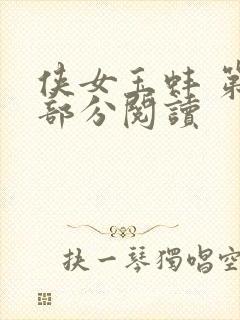 侠女玉蚌 第
部分閱讀
抉一琴獨唱空